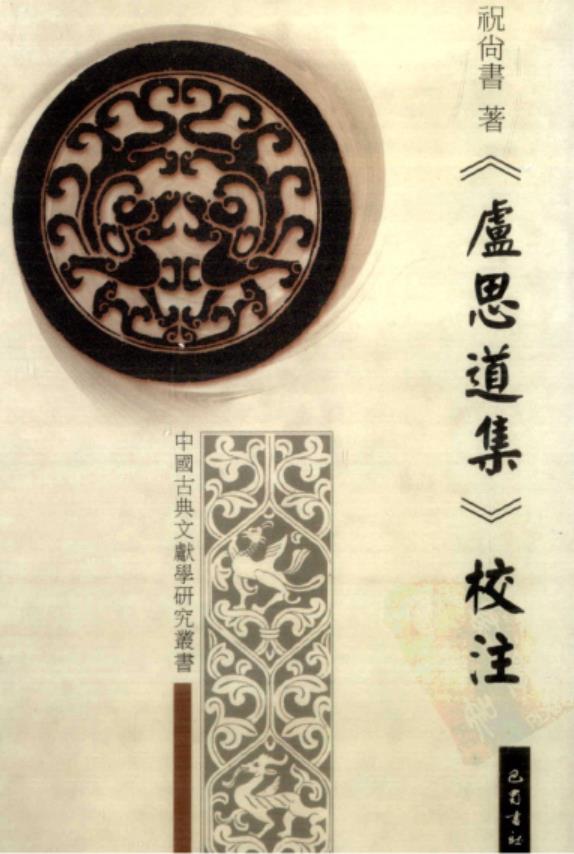 祝尚書 著
《盧思道集》校注
中國古典文獻學研究叢書
巴蜀書社